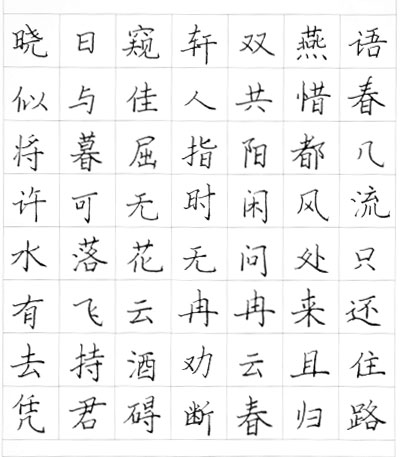 晓日窥轩双燕语
似与佳人共惜春
将暮屈指阳都几
许可无时闲风流
水落花无问处只
有飞云冉冉来还
去持酒劝云且住
凭君碍断春归路